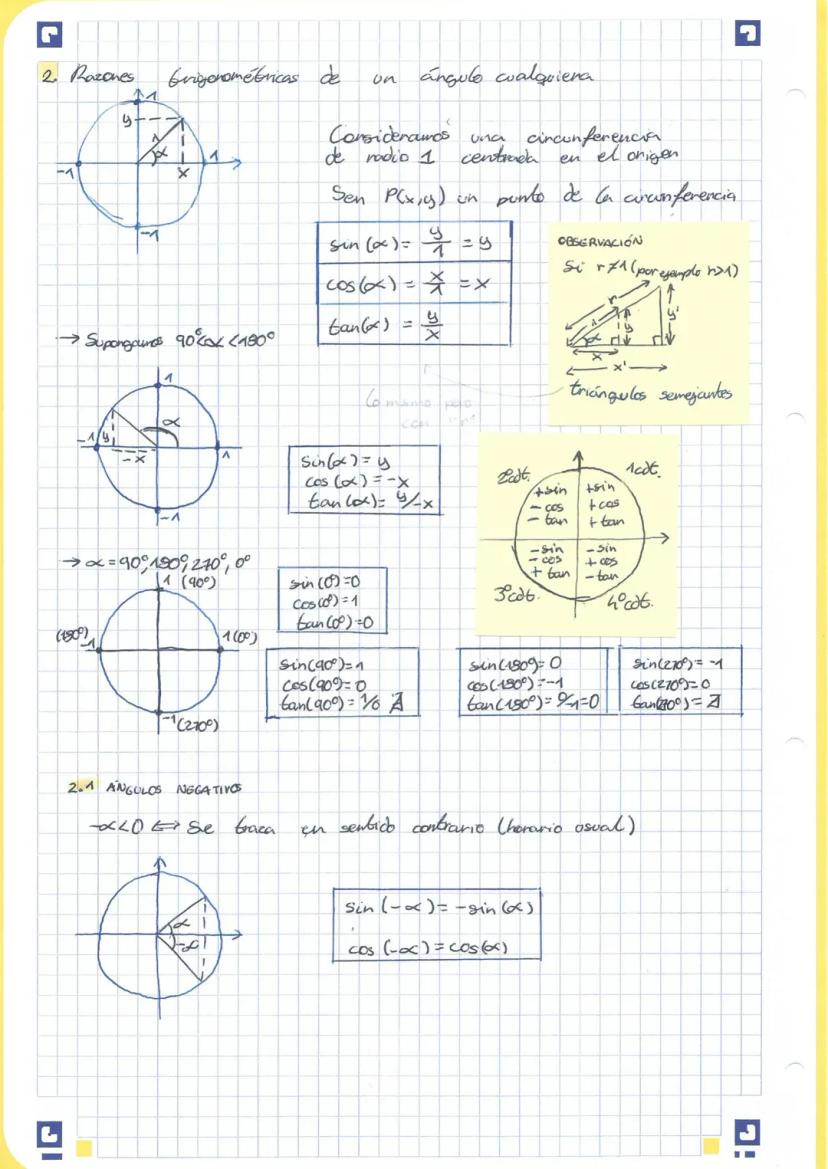 2. Razones trigonométricas de un ángulo cualquiera
1
y
1
α
x
1
-1
-1
Consideramos una circunferencia
de radio 1 centrada en el origen
Sen P(x,y) un punto de la circunferencia
sin (α) = y/1 = y
cos(α) = x/1 = x
tan(α) = y/x
OBSERVACIÓN
Si r≠1 (por ejemplo r>1)
r
1
y
y'
α
x
x'
triángulos semejantes
→ Supongamos 90º<α<180º
1
α
-1
y
-x
1
-1
Lo mismo pero
con "r"
sin(α) = y
cos (α) = -x
tan (α) = y/-x
2ºcdt.
1cdt.
+sin
- cos
- tan
+sin
+ cos
+ tan
-sin
- cos
+ tan
-sin
+ cos
- tan
3ºcdt.
4ºcdt.
→ α = 90º, 180º, 270º, 0º
1 (90º)
(180º) -1
1 (0º)
-1 (270º)
sin (0º) = 0
cos (0º) = 1
tan (0º) = 0
sin(90º) = 1
cos(90º) = 0
tan(90º) = 1/0 ∄
sin(180º) = 0
cos(180º) = -1
tan(180º) = 0/-1 = 0
sin(270º) = -1
cos(270º) = 0
tan(270º) = ∄
2.1 ÁNGULOS NEGATIVOS
-α<0 ⇔ Se traza en sentido contrario (horario usual)
α
-α
sin (-α) = -sin (α)
cos (-α) = cos(α)